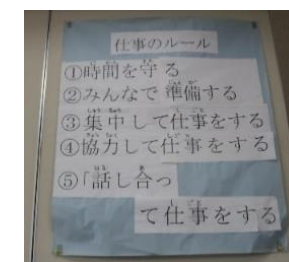 仕事のルール
①時間を守る
②みんなで準備する
③集中して仕事をする
④協力して仕事をする
⑤「話し合っ
て仕事をする